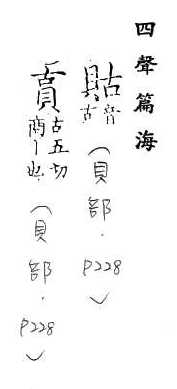 四聲篇海
音古（貝部．P228）
賈古五切商丨也（貝部．P228）